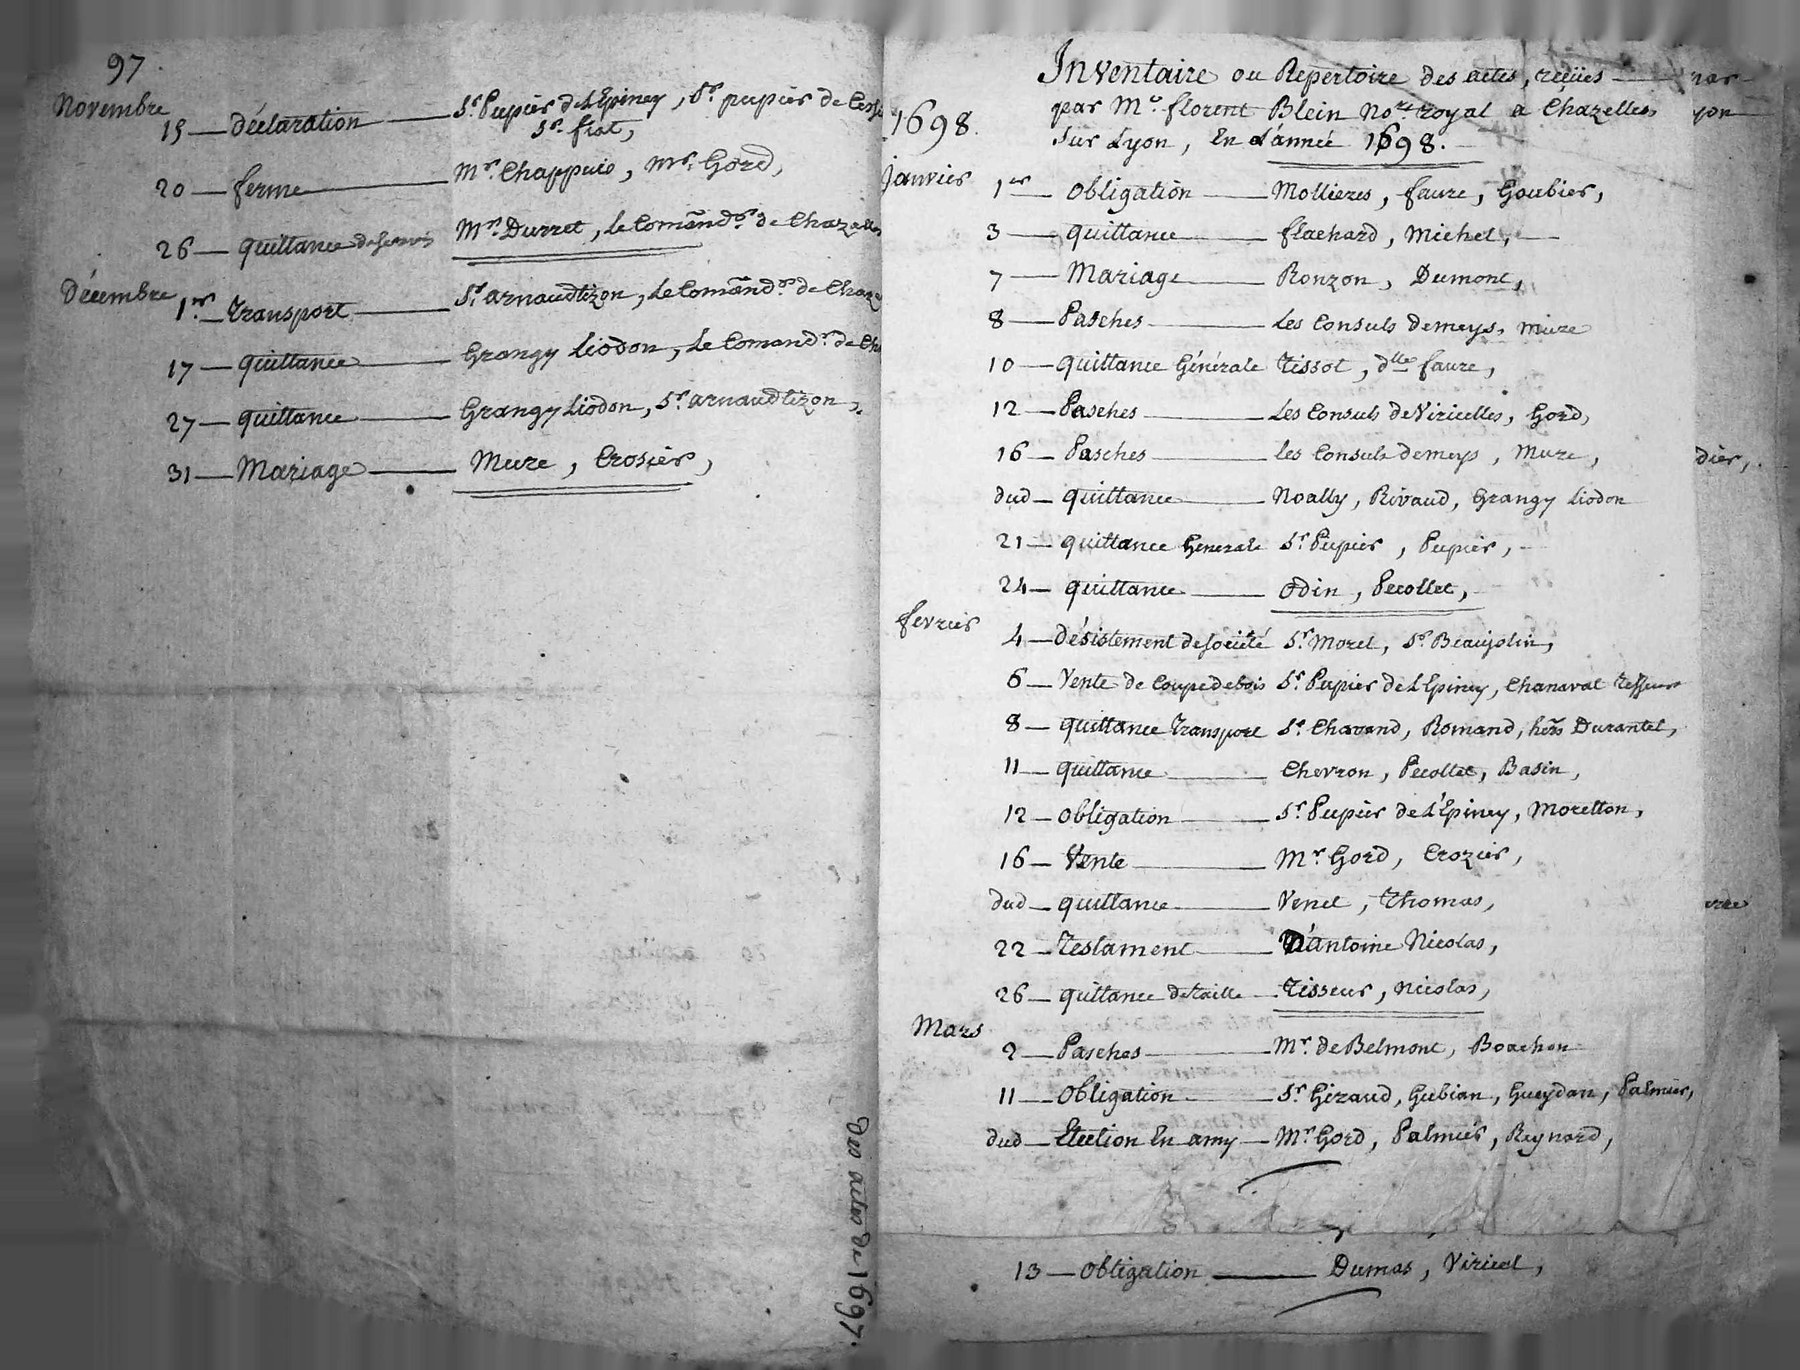 97.
Novembre
15 — déclaration — Sr. Pupier de L'Epiney, Sr. pupier de
Sr. fiat,
20 — ferme — Mr. Chappuis, Mr. Gord,
26 — quittance de servis Mr. Durret, le Comandr. de Chazelles
Décembre
1er — transport — Sr. arnaudtizon, le Comandr. de
17 — quittance — Grangy Liodon, le Comandr. de
27 — quittance — Grangy Liodon, Sr. arnaudtizon,
31 — Mariage — Mure, Crosier,
des actes de 1697.
Inventaire ou Repertoire des actes, reçües
1698. par Me. florent Blein Nore. royal a Chazelles
Sur Lyon, En L'année 1698.
Janvier
1er — obligation — Mollieres, faure, Goubier,
3 — quittance — flachard, Michel,
7 — Mariage — Ronzon, Dumont,
8 — Pasches — Les Consuls demeys, mure
10 — quittance Générale Tissot, dlle faure,
12 — Pasches — Les Consuls de Viricelles, Gord,
16 — Pasches — les Consuls demeys, Mure,
dud — quittance — Noally, Rivaud, Grangy Liodon
21 — quittance Generale Sr. Pupier, Pupier,
24 — quittance — Odin, Pecollet,
fevrier
4 — désistement de société Sr. Morel, Sr. Beaujolin,
6 — Vente de Coupe de bois Sr. Pupier de L'Epiney, Chanaval
8 — quittance transport Sr. Chavand, Romand, hers Durantel,
11 — quittance — Chevron, Pecollet, Basin,
12 — obligation — Sr. Pupier de L'Epiney, Moretton,
16 — Vente — Mr. Gord, Crozier,
dud — quittance — Venet, Thomas,
22 — Testament — D'antoine Nicolas,
26 — quittance de taille — Tisseur, Nicolas,
Mars
2 — Pasches — Mr. de Belmont, Boachon
11 — obligation — Sr. Giraud, Gubian, Gueydan, Palmier,
dud — Election En amy — Mr. Gord, Palmier, Reynard,
13 — obligation — Dumas, Viricel,